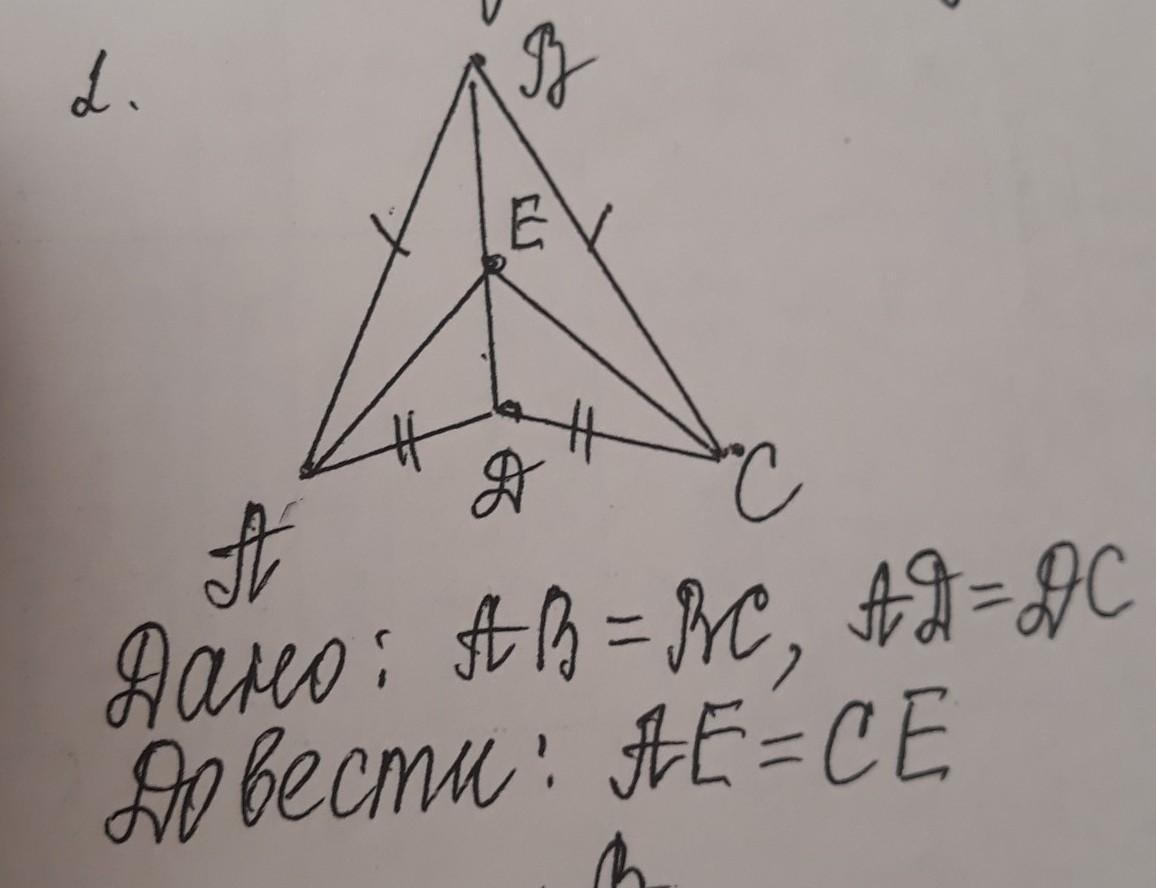 1.
B
E
D
C
A
Дано: AB = BC, AD = DC
Довести: AE = CE